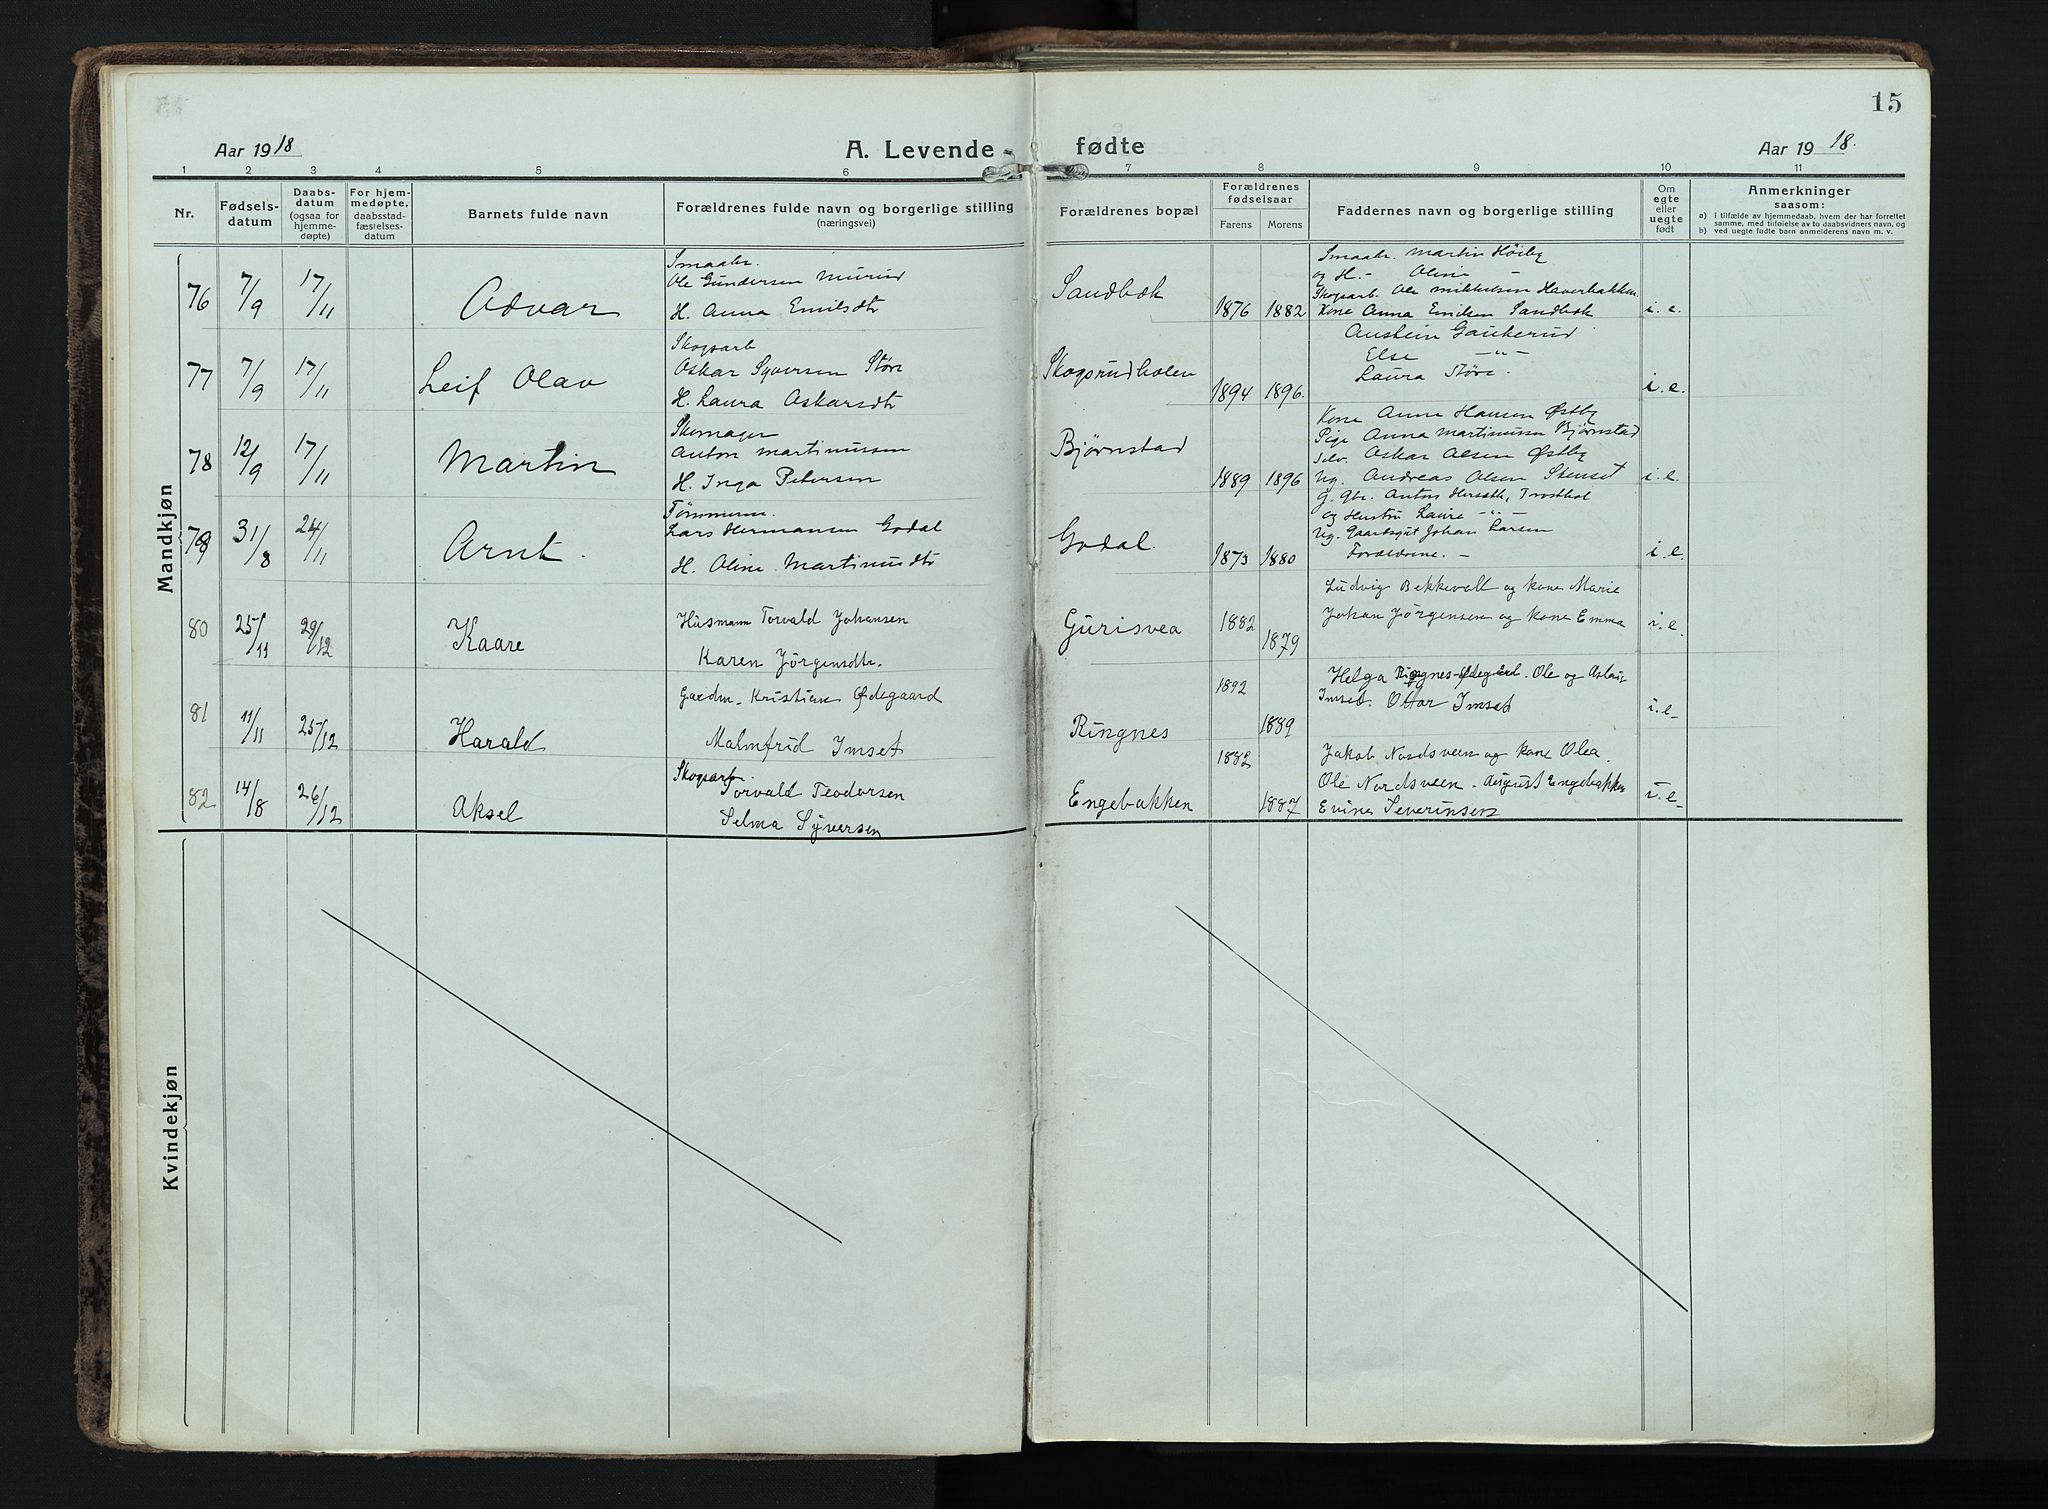 15
Aar 1918
A. Levende
fødte
Aar 1918.
1 2 3 4 5 6 7 8 9 10 11
Nr.
Fødselsdatum
Daabsdatum (ogsaa for hjemmedøpte)
For hjemmedøpte, daabsstadfæstelsesdatum
Barnets fulde navn
Forældrenes fulde navn og borgerlige stilling
(næringsvei)
Forældrenes bopæl
Forældrenes fødselsaar
Farens Morens
Faddernes navn og borgerlige stilling
Om egte eller uegte født
Anmerkninger
saasom:
a) i tilfælde av hjemmedaab, hvem der har forrettet samme, med tilføielse av to daabsvidners navn, og
b) ved uegte fødte barn anmelderens navn m. v.
Mandkjøn
76 7/9 17/11 Odvar
Smaabr.
Ole Gundersen Murud
H. Anna Emilsdtr
Sandbæk 1876 1882
Smaabr. Martin Høiby
og H. - Oline
Skogsarb. Ole Mikkelsen Haverbakken
Kone Anna Emilsen Sandbæk
i. e.
77 7/9 17/11 Leif Olav
Skogsarb
Oskar Syversen Støre
H. Laura Oskarsdtr
Skogsrudholen 1894 1896.
Austein Gaukerud
Else -"-
Laura Støre.
i. e.
78 12/9 17/11 Martin
Skomager
Anton Martinussen
H. Inga Petersen
Bjørnstad 1889 1896
Kone Anna Hansen Østby
Pige Anna Martinussen Bjørnstad
Selv. Oskar Olsen Østby
Ug. Andreas Olsen Stenset
i. e.
79 31/8 24/11 Arnt.
Tømmerm.
Lars Hermansen Godal
H. Oline Martinusdtr
Godal. 1873 1880
G. gbr. Anton Herseth,
og Hustru Laura -"-
Ug. Gaardsgut Johan Larsen
Forældrene. -
i. e.
80 25/11 29/12 Kaare
Husmann Torvald Johansen
Karen Jørgensdtr.
Gurisvea 1882 1879
Ludvig Bekkevoll og kone Marie
Johan Jørgensen og kone Emma
i. e.
81 11/11 25/12 Harald
Gardm. Kristian Ødegaard
Malmfrid Imset
Ringnes 1892 1889
Helga Ringnes-Ødegård. Ole og Aslaug
Imset. Ottar Imset
i. e-
82 14/8 26/12 Aksel
Skogsarb.
Torvald Teodorsen
Selma Syversen
Engebakken 1882 1887
Jakob Nordsveen og kone Olea.
Ole Nordsveen. August Engebakken
Evine Severinsen
i. e-
Kvindekjøn